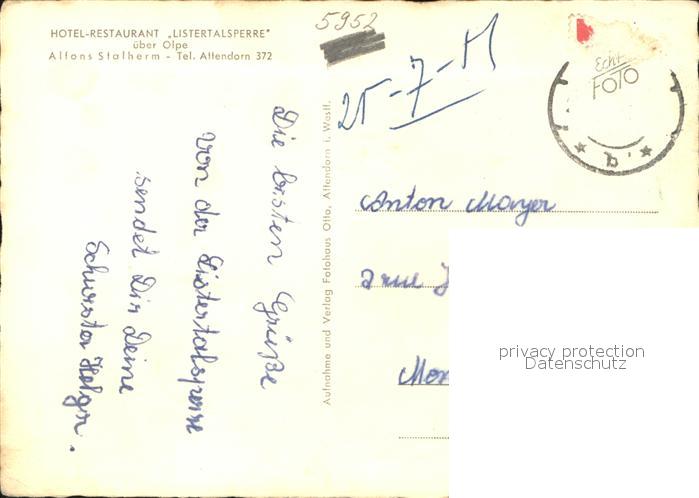 HOTEL-RESTAURANT „LISTERTALSPERRE"
über Olpe
Alfons Stalherm - Tel. Attendorn 372
5952
25-7-
Echt
FOTO
b
Die besten Grüße
von der Listertalsperre
sendet Dir Deine
Schwester Helga.
Aufnahme und Verlag Fotohaus Otto, Attendorn i. Westf.
Anton Mayer
privacy protection
Datenschutz